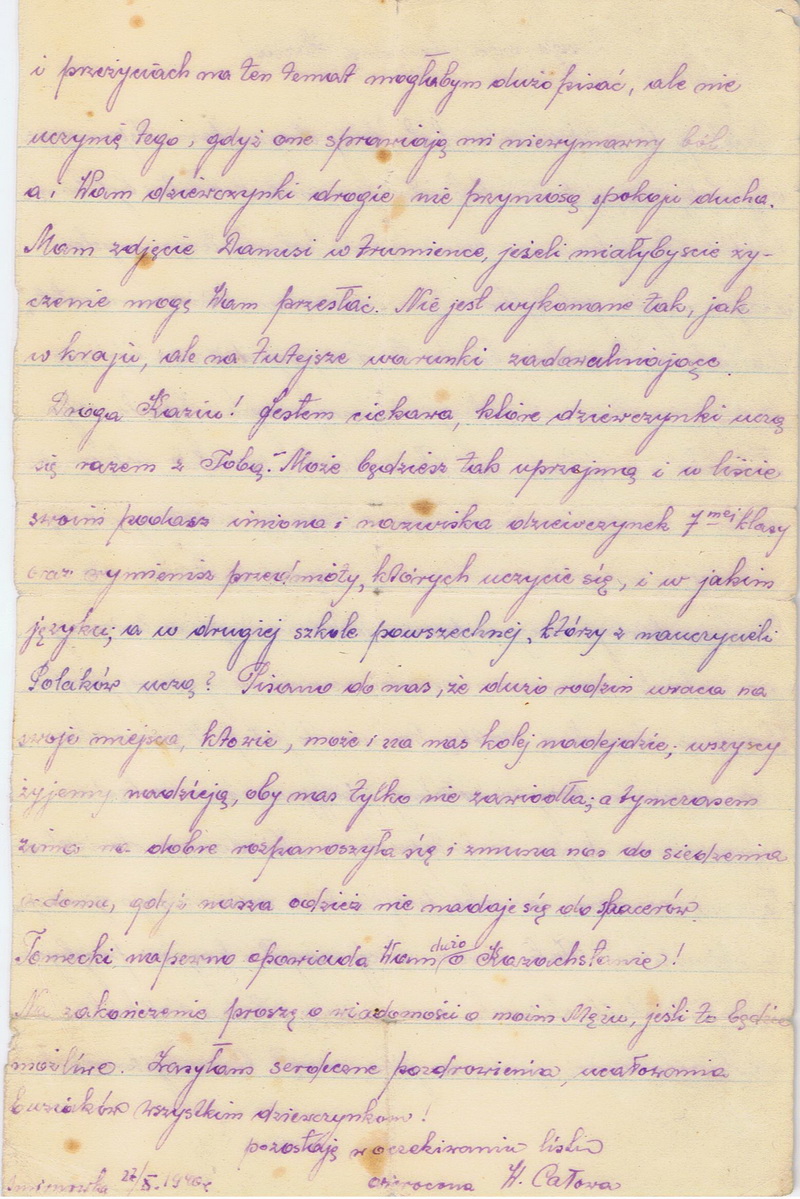 i przeżyciach na ten temat mogłabym dużo pisać, ale nie
uczynię tego, gdyż one sprawiają mi niewymarny ból
a i Wam dziewczynki drogie nie przyniosą spokoju ducha.
Mam zdjęcie Danusi w trumience, jeżeli miałybyście ży-
czenie mogę Wam przesłać. Nie jest wykonane tak, jak
w kraju, ale na tutejsze warunki zadawalniające.
Droga Kaziu! Jestem ciekawa, które dziewczynki uczą
się razem z Tobą. - Może będziesz tak uprzejmą i w liście
swoim podasz imiona i nazwiska dziewczynek 7mej klasy
oraz wymienisz przedmioty, których uczycie się, i w jakim
języku; a w drugiej szkole powszechnej, którzy z nauczycieli
Polaków uczą? Pisano do nas, że dużo rodzin wraca na
swoje miejsca, kto wie, może i na nas kolej nadejdzie; wszyscy
żyjemy nadzieją, oby nas tylko nie zawiodła; a tymczasem
zima na dobre rozpanoszyła się i zmusza nas do siedzenia
w domu, gdyż nasza odzież nie nadaje się do spacerów.
Tomecki napewno opowiada Wam dużo o Kazachstanie!
Na zakończenie proszę o wiadomości o moim Mężu, jeśli to będzie
możliwe. Zasyłam serdeczne pozdrowienia, ucałowania
buziaków wszystkim dziewczynkom!
pozostaję w oczekiwaniu listu
27/X. 1940 r. osierocona H. Całowa